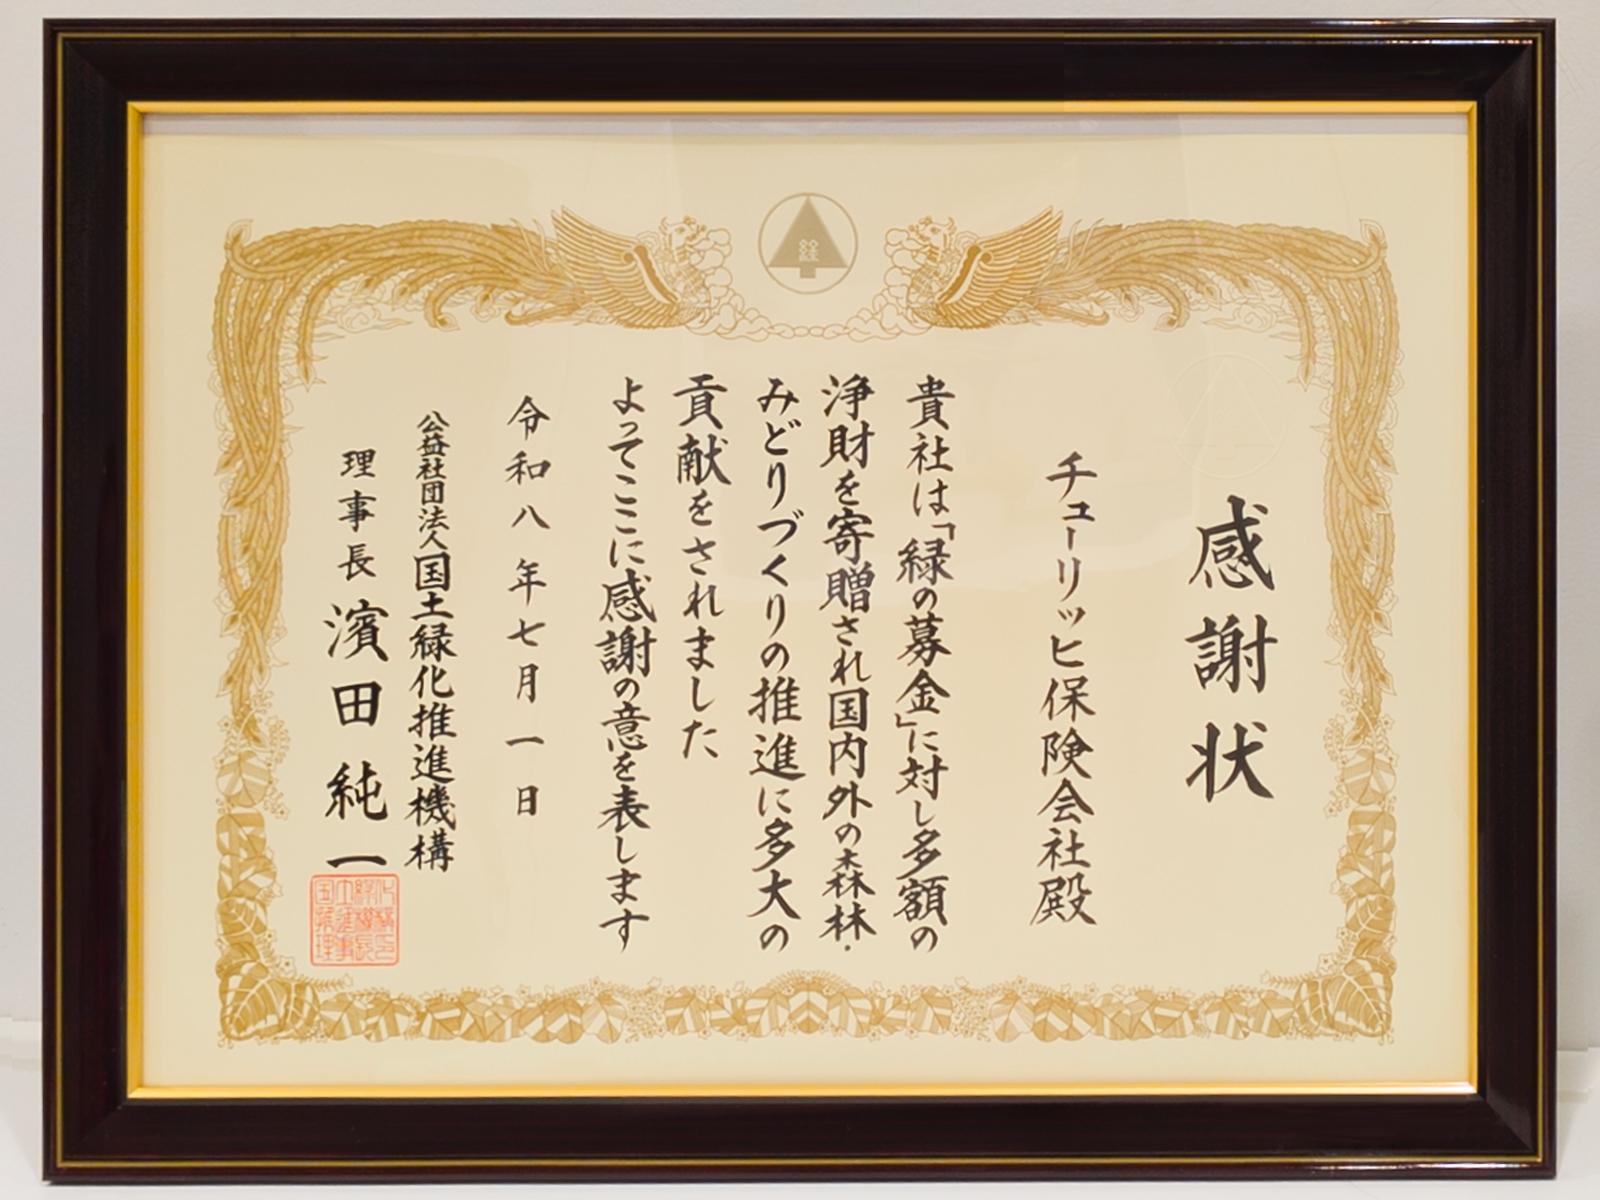 感謝状
チューリッヒ保険会社殿
貴社は「緑の募金」に対し多額の
浄財を寄贈され国内外の森林・
みどりづくりの推進に多大の
貢献をされました
よってここに感謝の意を表します
令和八年七月一日
公益社団法人国土緑化推進機構
理事長 濱田純一